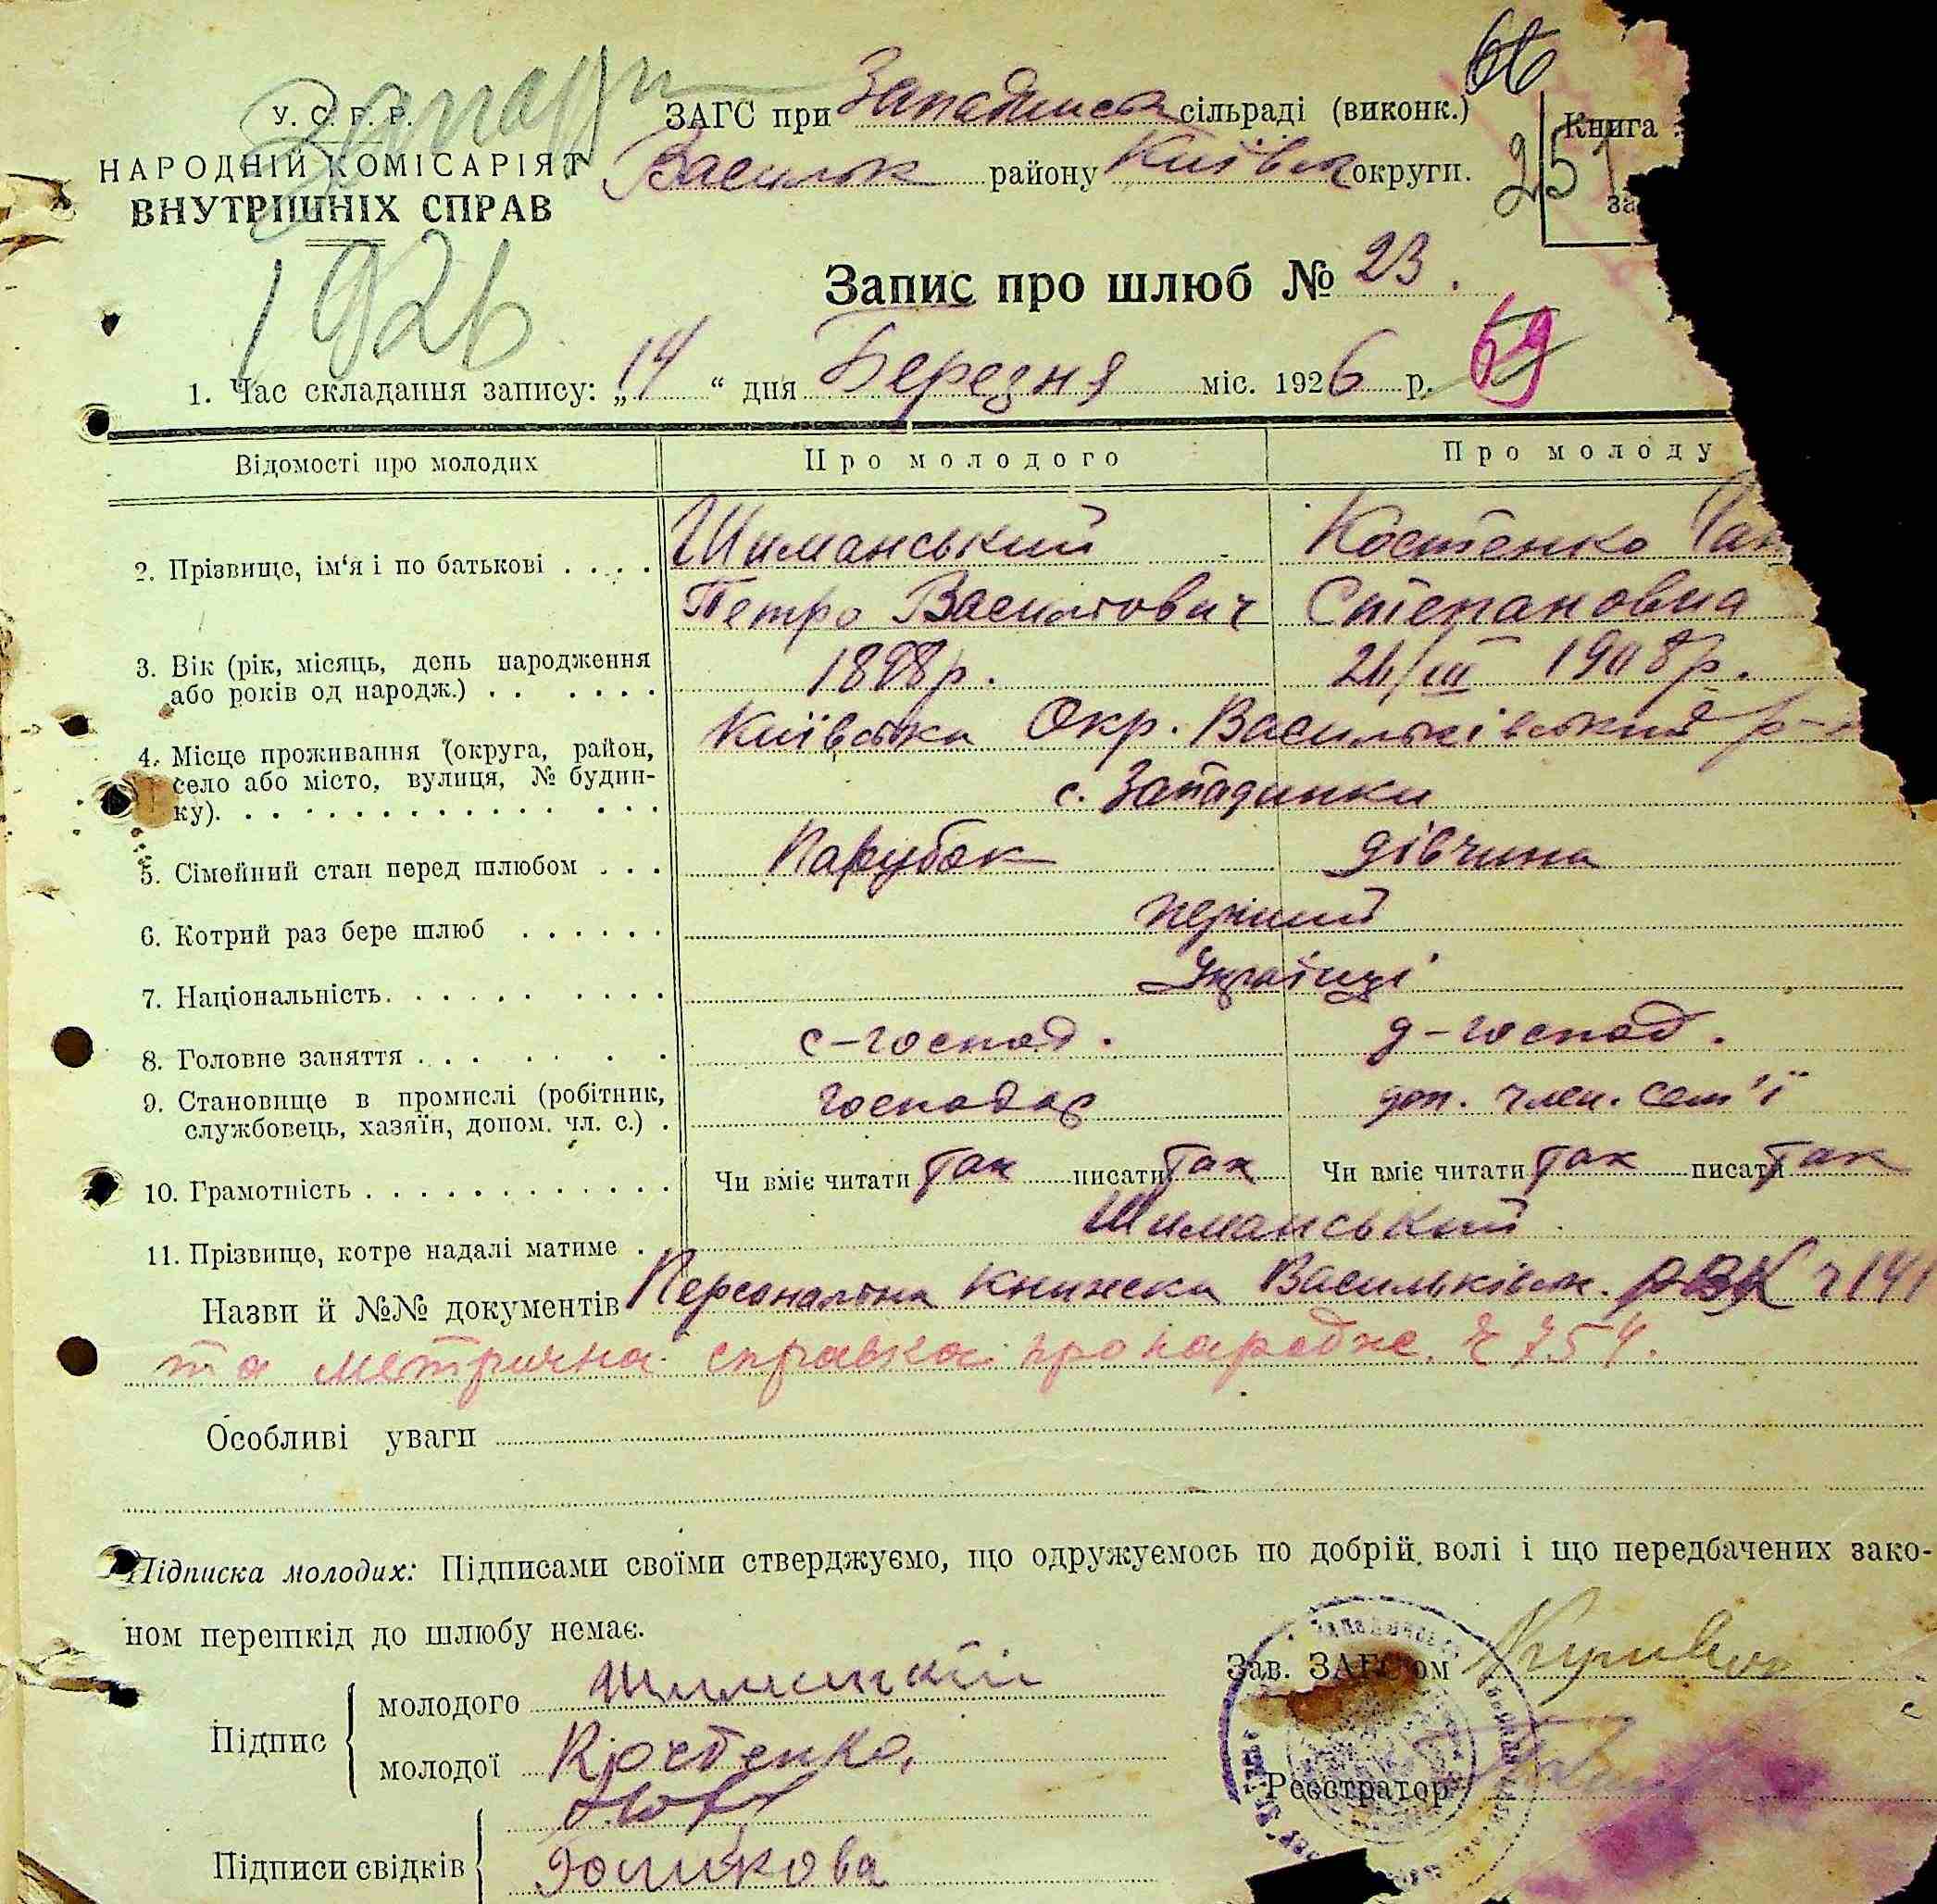 66
У. С. Р. Р.
ЗАГС при Западинськ сільраді (виконк.)
Книга
НАРОДНІЙ КОМІСАРІЯТ
Васильк району Київськ округи.
251
ВНУТРІШНІХ СПРАВ
за
1926
Запис про шлюб № 23.
69
1. Час складання запису: „14“ дня Березня міс. 1926 р.
Відомості про молодих
Про молодого
Про молоду
2. Прізвище, ім‘я і по батькові . . . .
Шиманський
Костенко
Петро Васильович
Степановна
3. Вік (рік, місяць, день народження
або років од народж.) . . . . . .
1898р.
/III 1908р.
4. Місце проживання (округа, район,
село або місто, вулиця, № будин-
ку). . . . . . . . . . . . . . .
Київська Окр. Васильківський р-
с. Западинки
5. Сімейний стан перед шлюбом . . .
Парубок
дівчина
6. Котрий раз бере шлюб . . . . . .
перший
7. Національність. . . . . . . . . .
Українці
8. Головне заняття . . . . . . .
с-господ.
д-господ.
9. Становище в промислі (робітник,
службовець, хазяїн, допом. чл. с.) .
господар
доп. член. сем'ї
10. Грамотність . . . . . . . . . . . .
Чи вміє читати так писати так
Чи вміє читати так писати так
11. Прізвище, котре надалі матиме .
Шиманський
Назви й №№ документів Персональна книжка Васильківськ. РВК ч 141
та метрична справка про народже. ч 754.
Особливі уваги
Підписка молодих: Підписами своїми стверджуємо, що одружуємось по добрій волі і що передбачених зако-
ном перешкід до шлюбу немає.
Зав. ЗАГС'ом
Підпис
молодого
молодої Костенко
Реєстратор
Підписи свідків